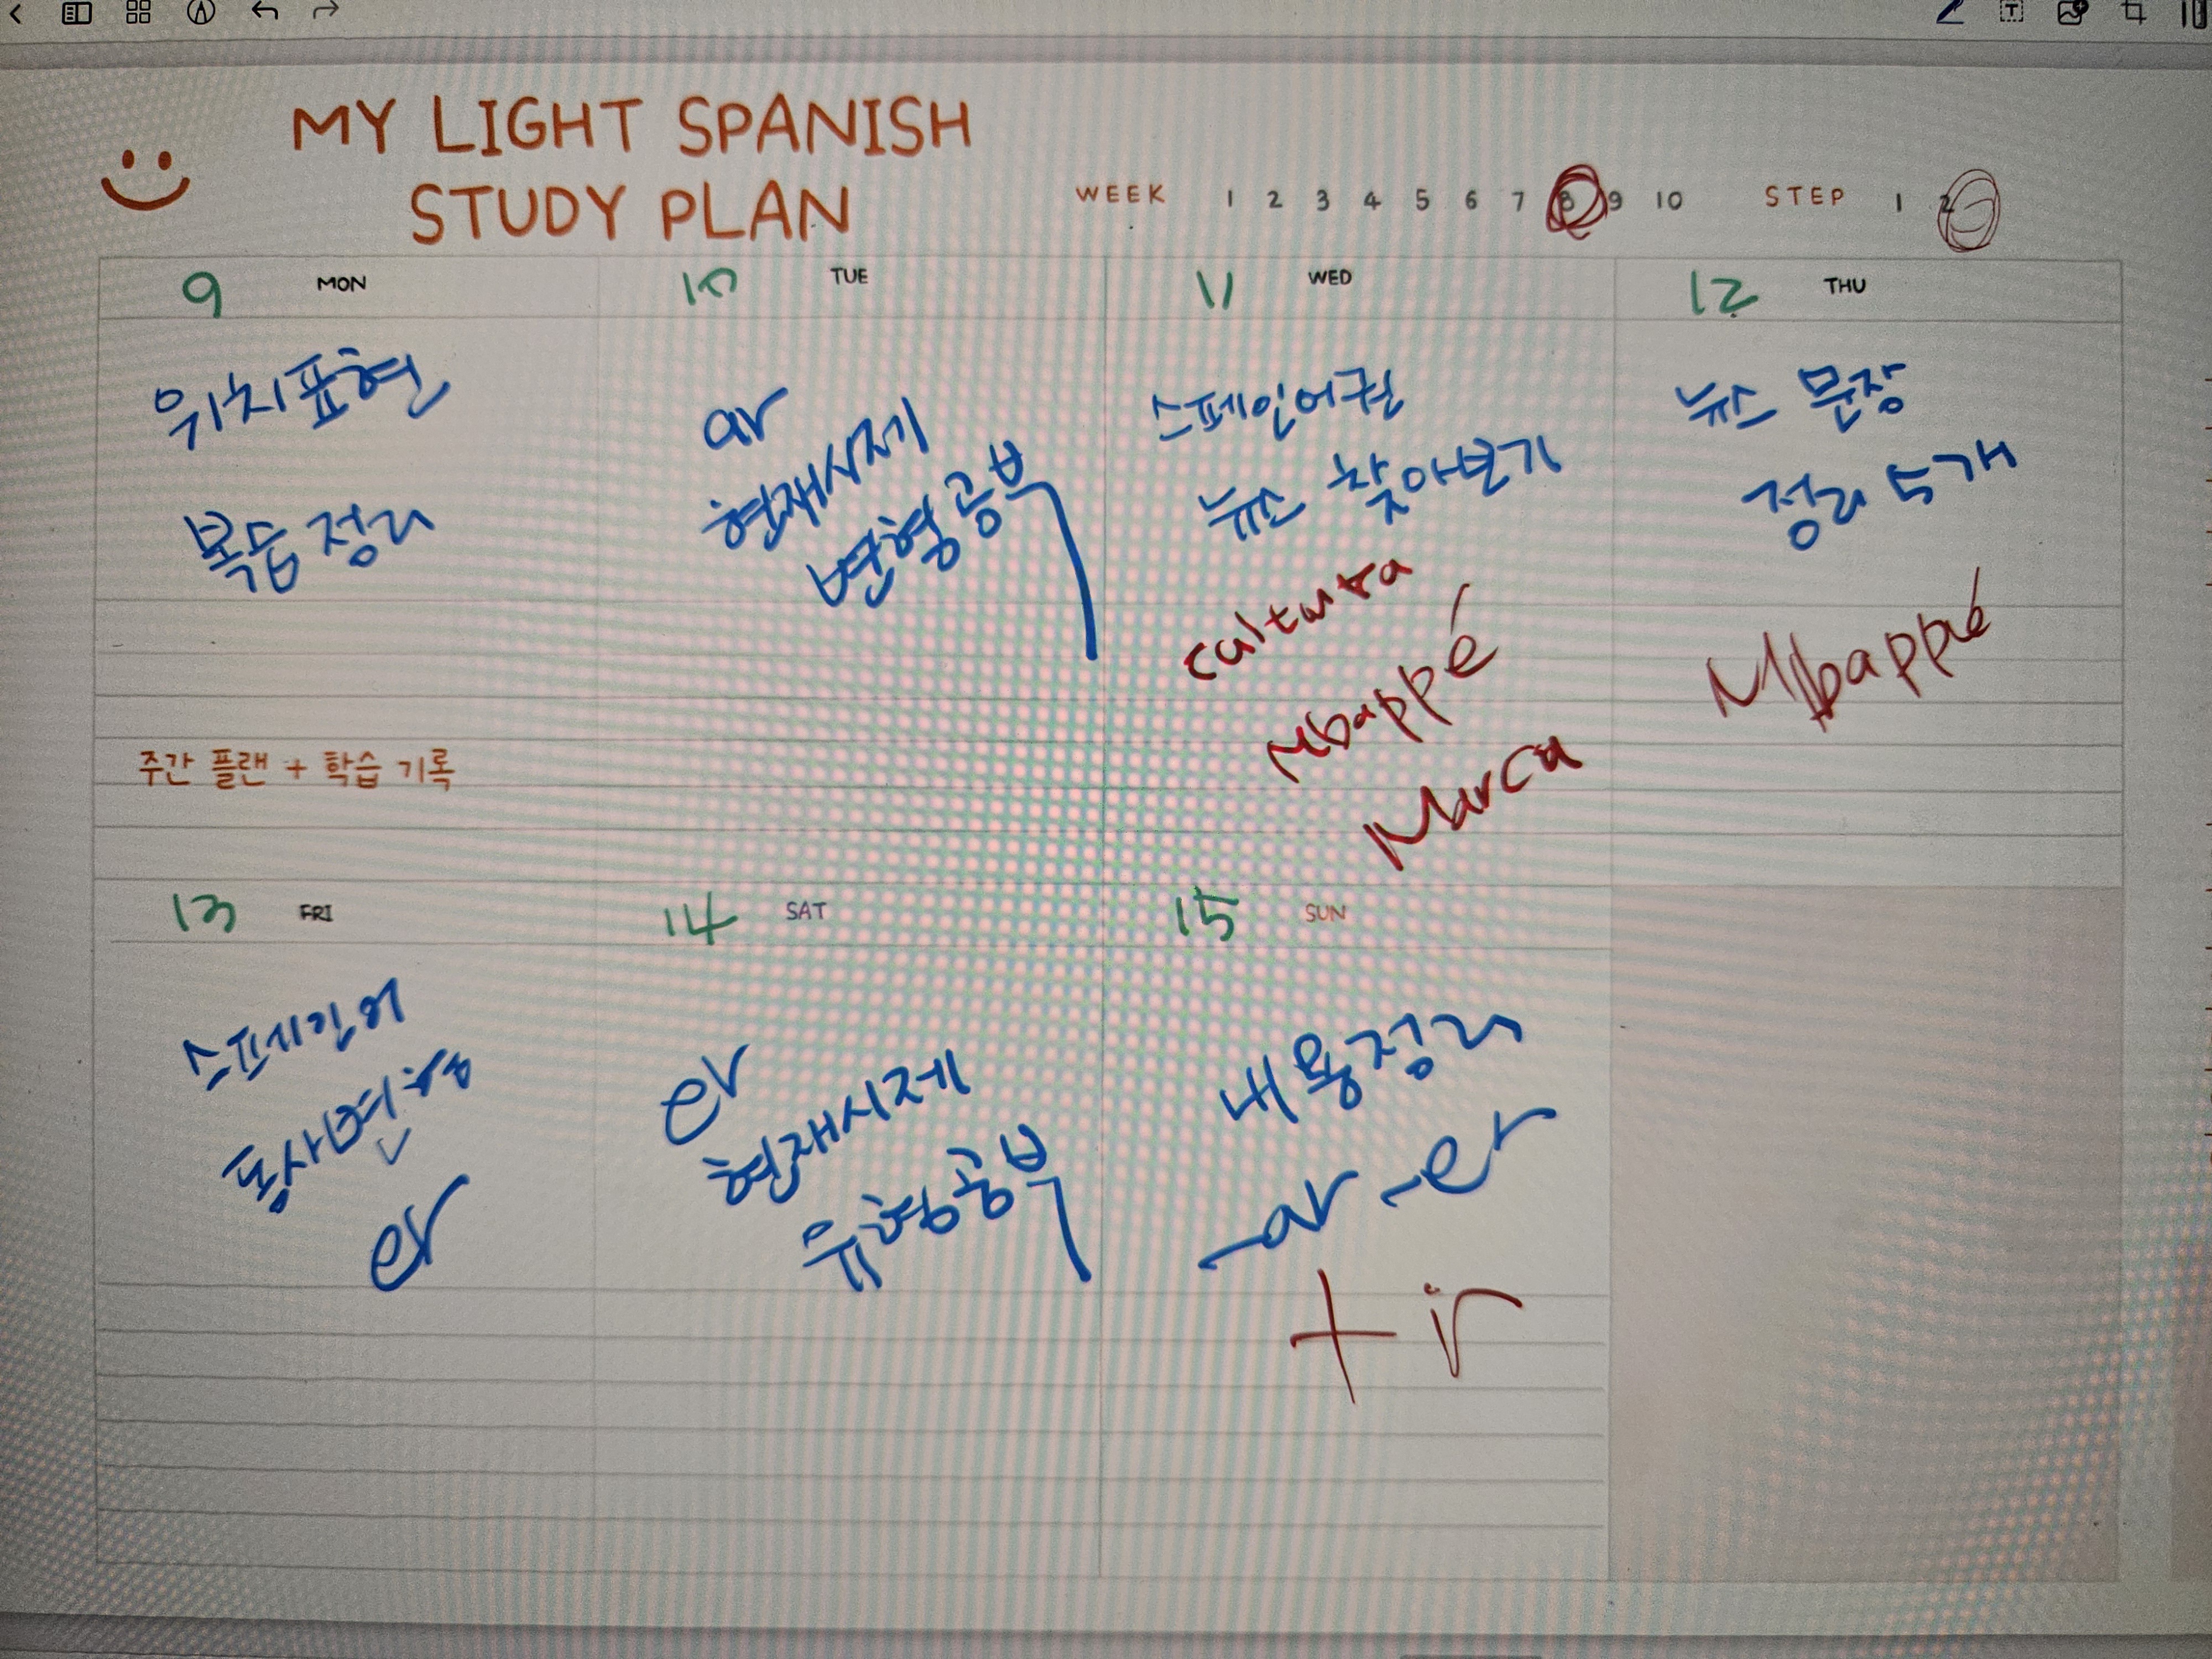 MY LIGHT SPANISH
STUDY PLAN
WEEK 1 2 3 4 5 6 7 8 9 10 STEP 1 2
9 MON
위치표현
복습정리
주간 플랜 + 학습 기록
10 TUE
ar
현재시제
변형공부
11 WED
스페인어권
뉴스 찾아보기
cultura
Mbappé
Marca
12 THU
뉴스 문장
정리 5개
Mbappé
13 FRI
스페인어
동사변형
er
14 SAT
er
현재시제
유형공부
15 SUN
내용정리
-ar -er
+ ir